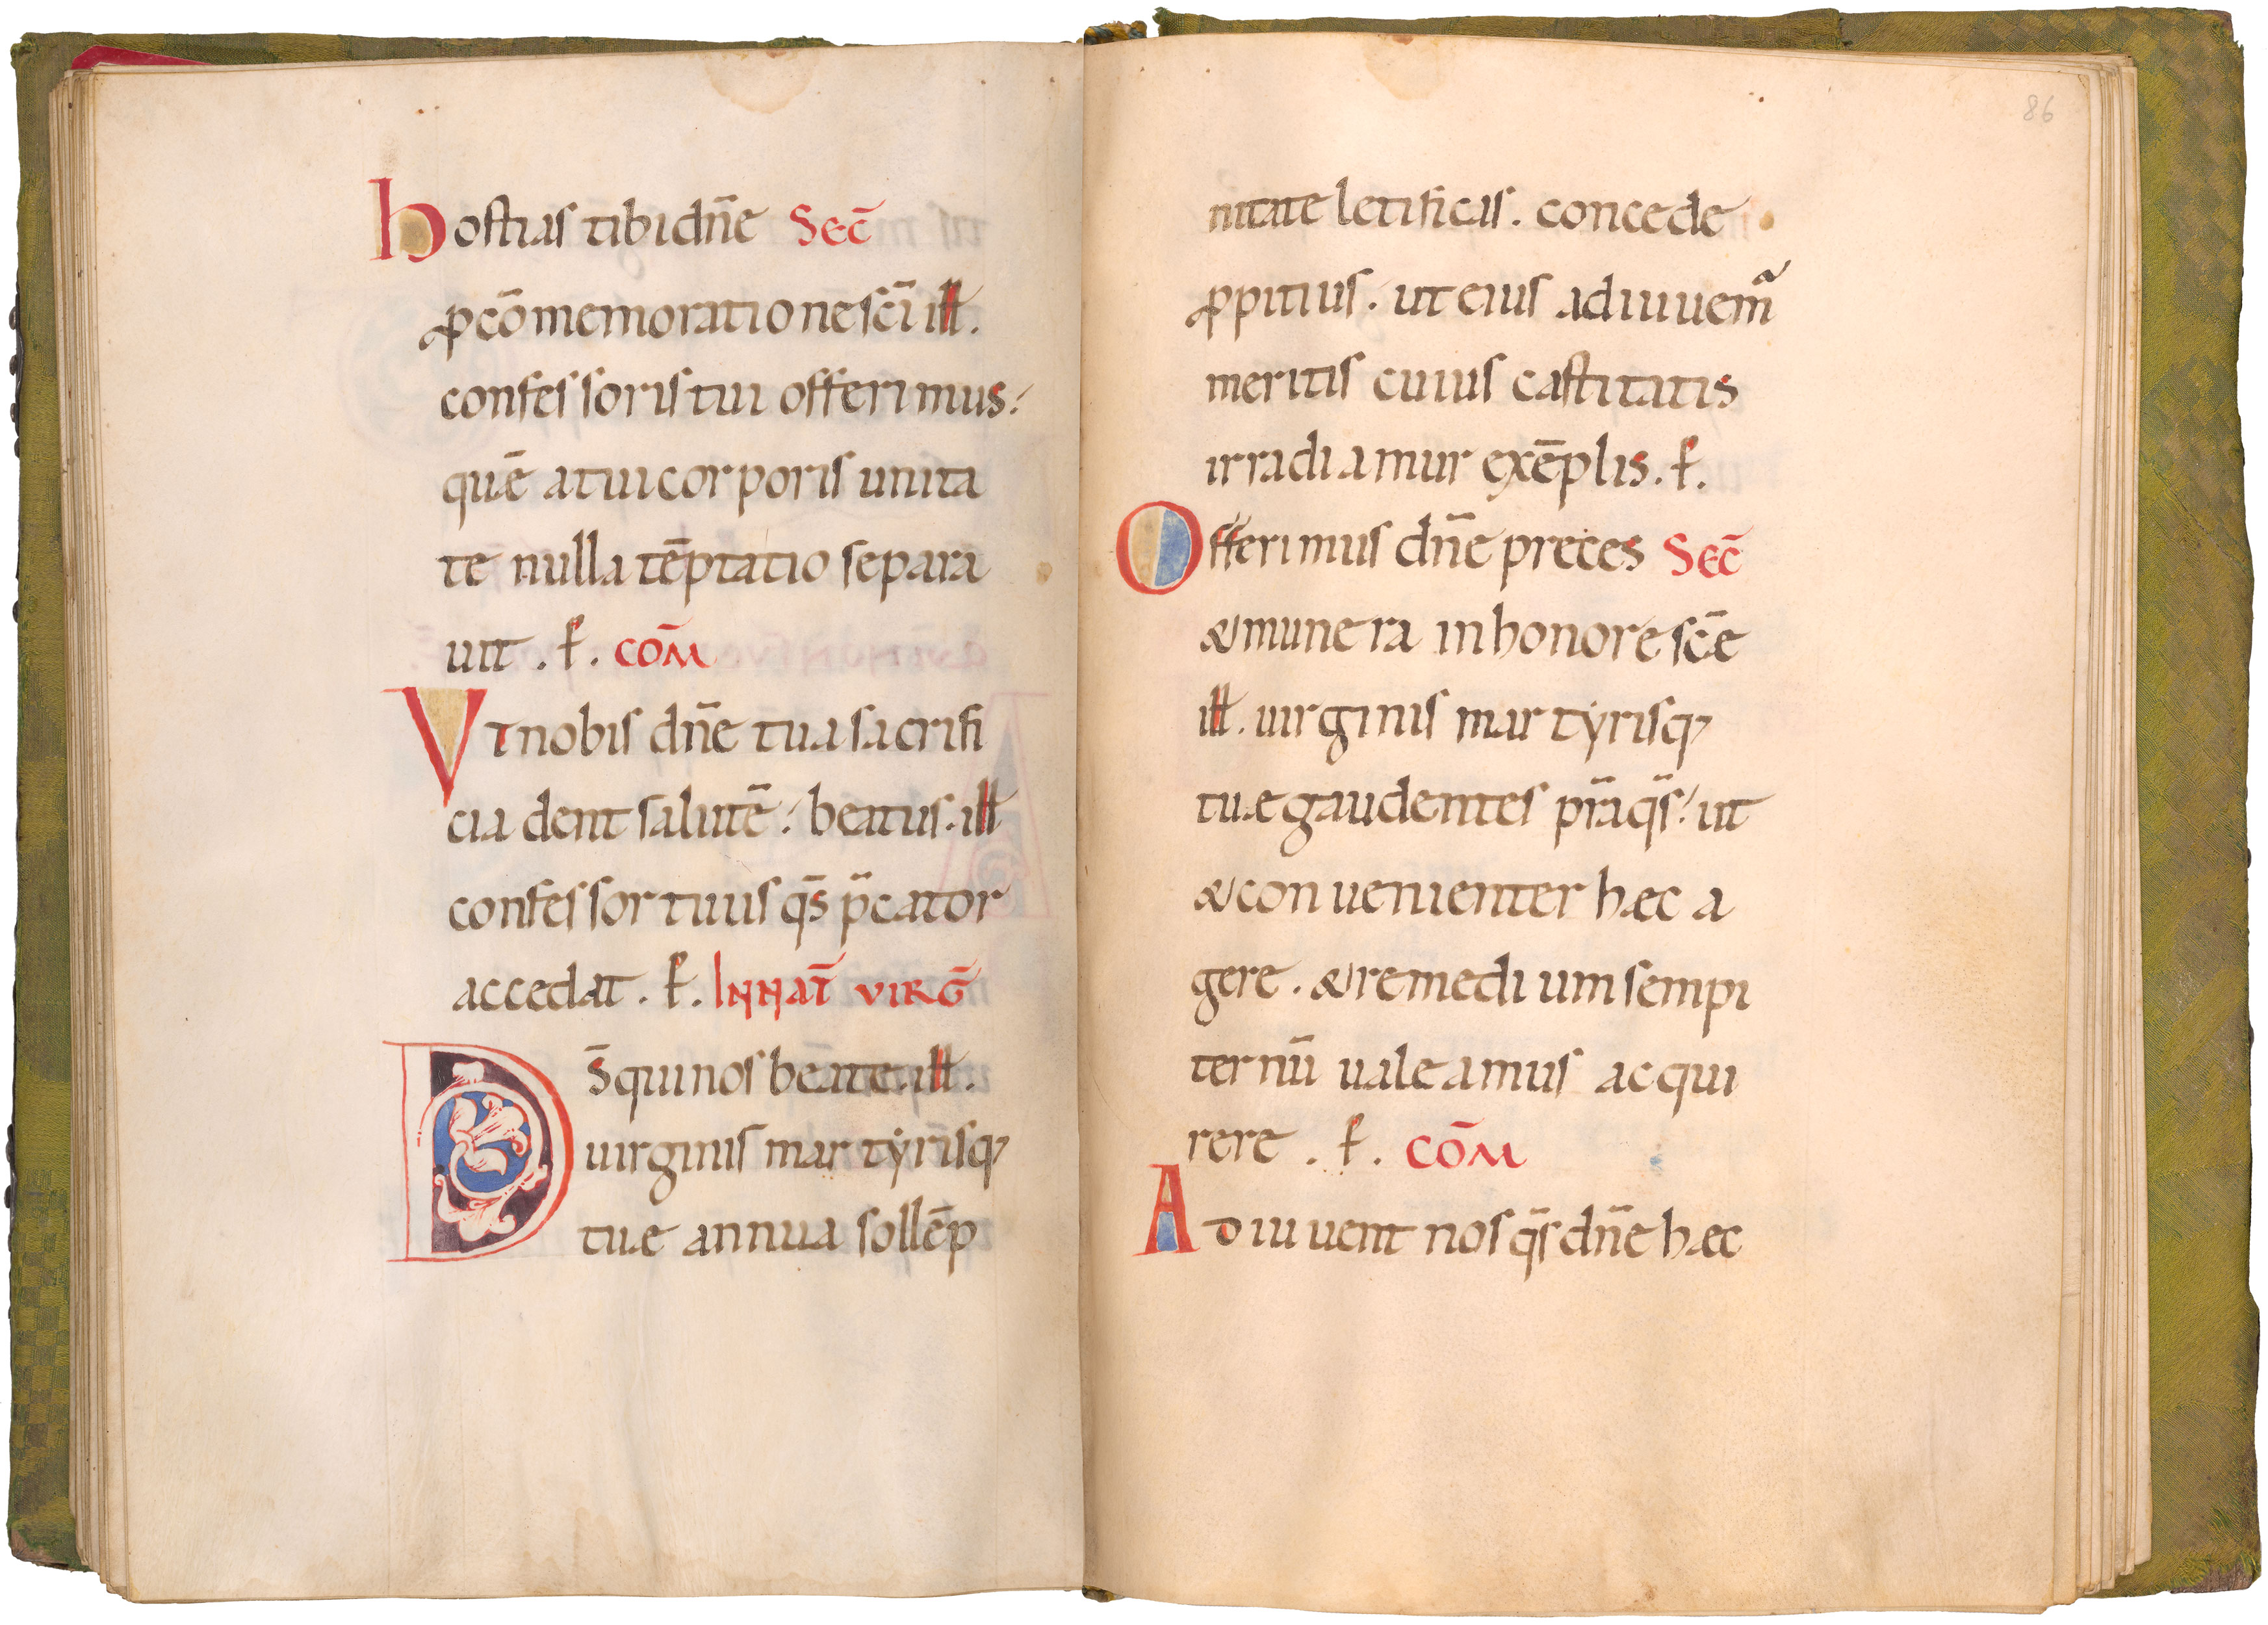 hostias tibi dn̄e Sec̄
ꝓ cōmemoratione sc̄i ill.
confessoris tui offerimus.
quē a tui corporis unita
te nulla tēptatio separa
uit . ꝑ. cōm
Vt nobis dn̄e tua sacrifi
cia dent salutē. beatus. ill
confessor tuus qs̄ p̄cator
accedat . ꝑ. In nat̄ virḡ
Ds̄ qui nos beate. ill.
uirginis martyrisq;
tuæ annua sollēp
86
nitate letificas. concede
ꝓpitius. ut eius adiuuem̃
meritis cuius castitatis
irradiamur exēplis. ꝑ.
Offerimus dn̄e preces Sec̄
& munera in honore sc̄e
ill. uirginis martyrisq;
tuæ gaudentes pr̄a qs̄. ut
& conuenienter hæc a
gere. & remedium sempi
ternū ualeamus acqui
rere . ꝑ. cōm
Adiuuent nos qs̄ dn̄e hæc